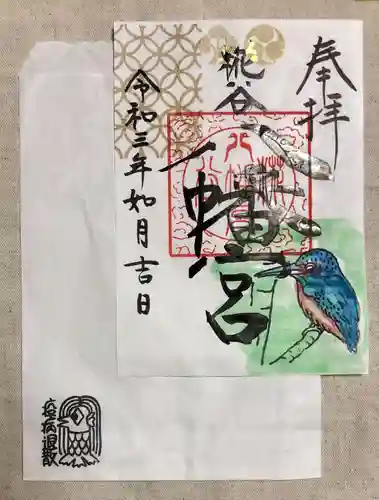 奉拝
柴谷
八幡宮
令和三年如月吉日
疫病退散